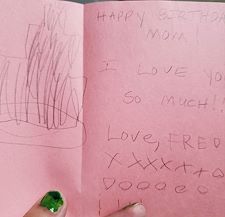 HAPPY BIRTHDA
MOM!
I LOVE YO
SO MUCH!!
LOVE, FRED
X XXX X X O
OOOOOO